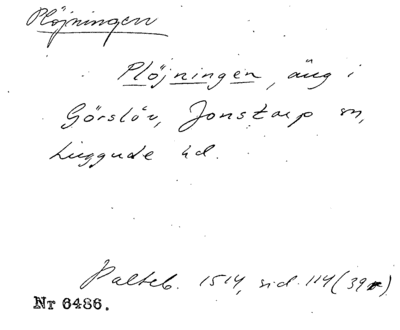 Plöjningen
Plöjningen, äng i
Görslöv, Jonstorp sn,
Luggude hd.
Palteb. 1514, sid. 114 (39)
Nr 6486.